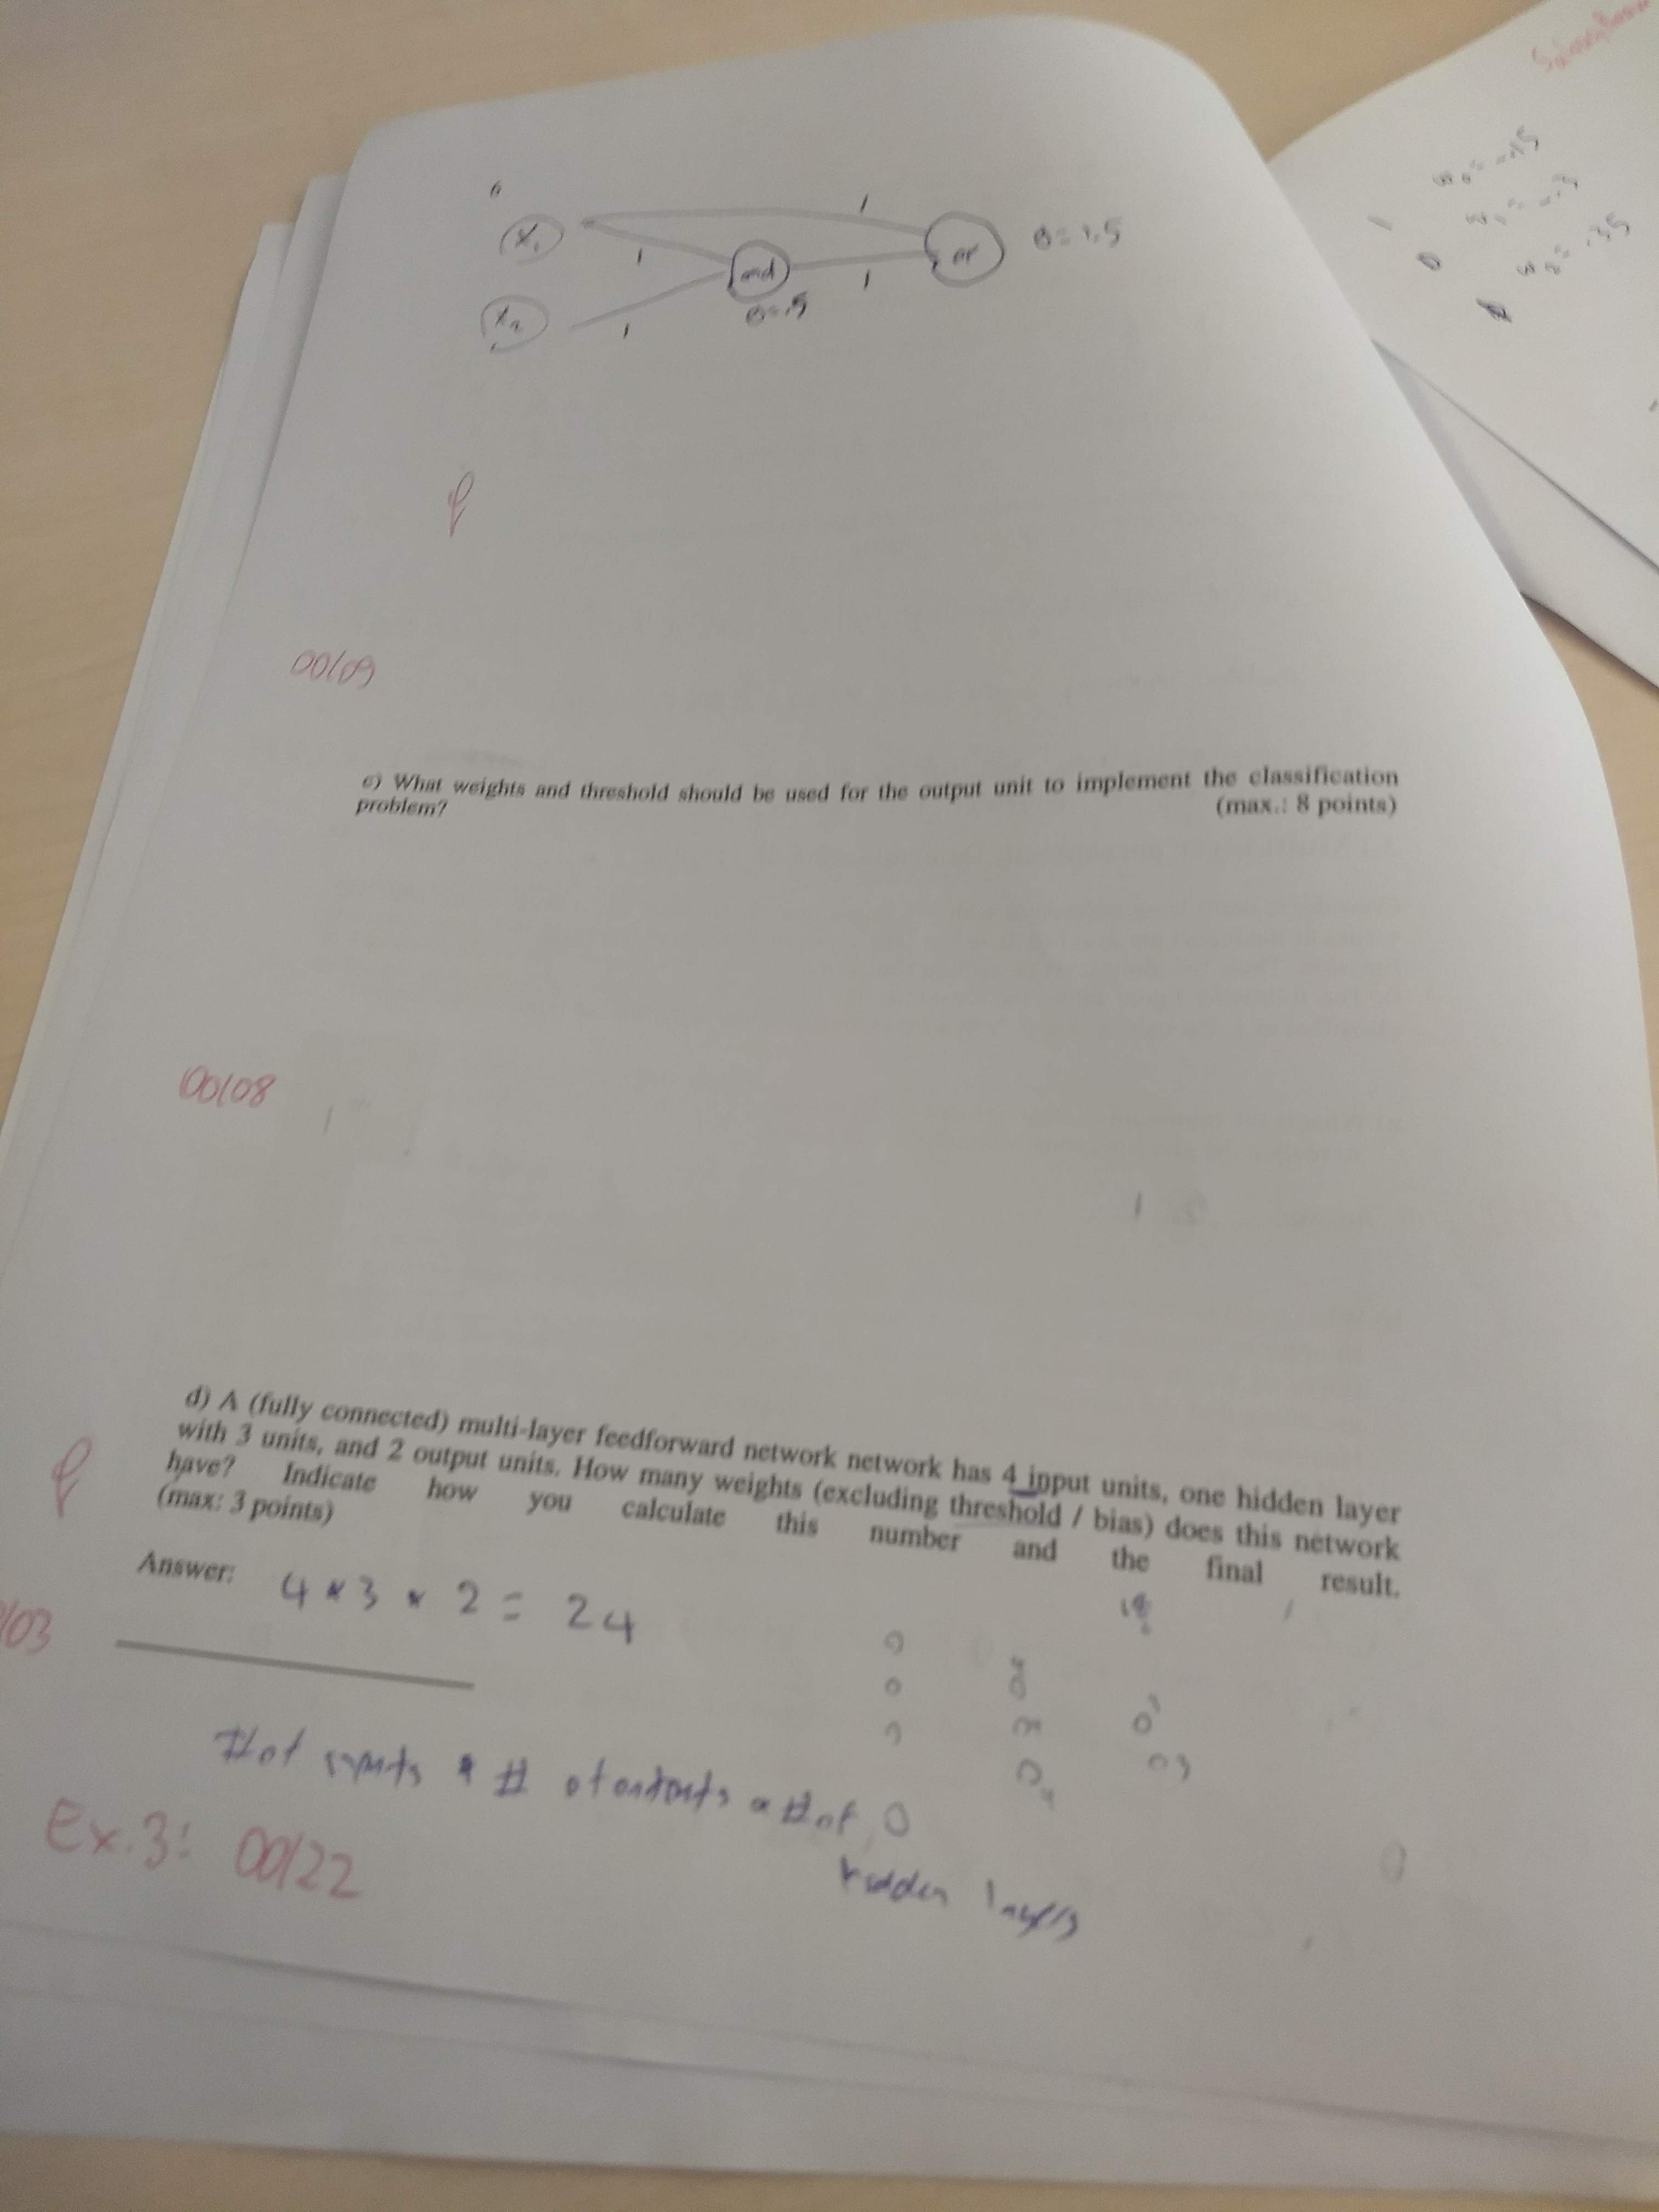 x₁
1
1
and
θ=.5
1
or
θ=1.5
x₂
1
00/09
c) What weights and threshold should be used for the output unit to implement the classification
problem? (max.: 8 points)
00/08
d) A (fully connected) multi-layer feedforward network network has 4 input units, one hidden layer
with 3 units, and 2 output units. How many weights (excluding threshold / bias) does this network
have? Indicate how you calculate this number and the final result.
(max: 3 points)
Answer: 4 * 3 * 2 = 24
/03
18
# of inputs * # of outputs * # of
hidden layers
Ex.3: 00/22